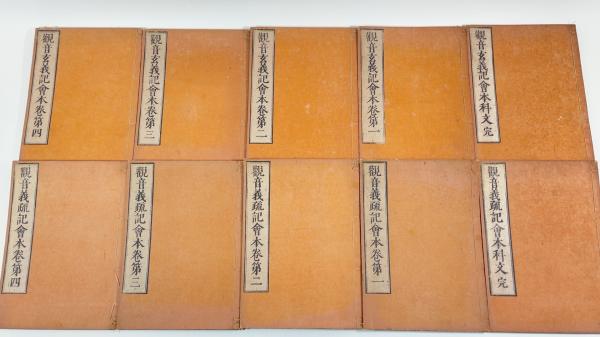 觀音玄義記會本科文 完
觀音玄義記會本卷第一
觀音玄義記會本卷第二
觀音玄義記會本卷第三
觀音玄義記會本卷第四
觀音義疏記會本科文 完
觀音義疏記會本卷第一
觀音義疏記會本卷第二
觀音義疏記會本卷第三
觀音義疏記會本卷第四